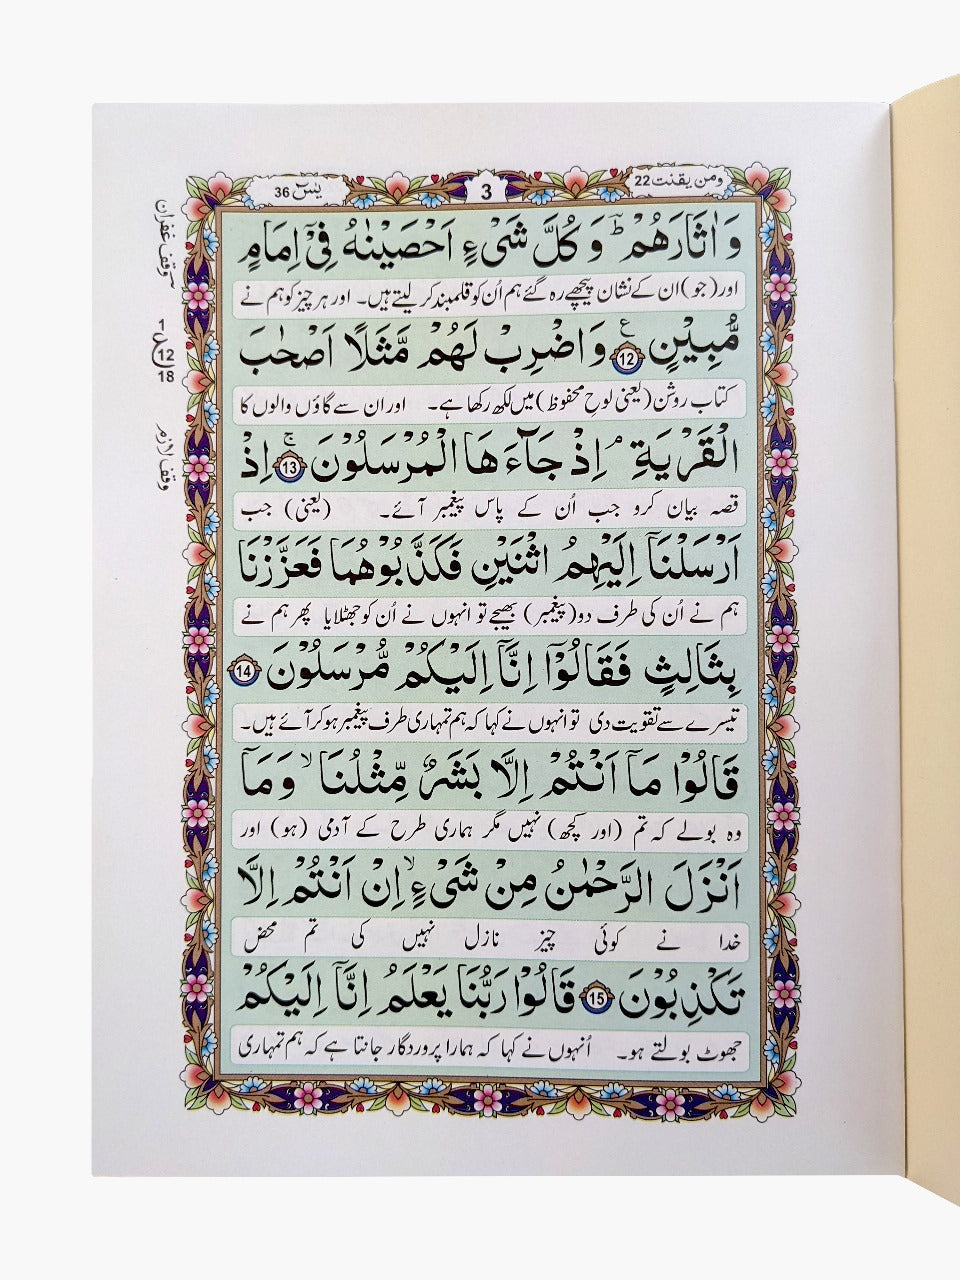 ومن یقنت 22
3
یٰسٓ 36
وَاٰثَارَهُمْ ؕ وَكُلَّ شَیْءٍ اَحْصَیْنٰهُ فِیْۤ اِمَامٍ
اور (جو) ان کے نشان پیچھے رہ گئے ہم اُن کو قلمبند کر لیتے ہیں۔ اور ہر چیز کو ہم نے
مُّبِیْنٍ ۧ 12 وَاضْرِبْ لَهُمْ مَّثَلًا اَصْحٰبَ
کتاب روشن (یعنی لوحِ محفوظ) میں لکھ رکھا ہے۔ اور ان سے گاؤں والوں کا
الْقَرْیَةِ ۘ اِذْ جَآءَهَا الْمُرْسَلُوْنَ ۚ 13 اِذْ
قصہ بیان کرو جب اُن کے پاس پیغمبر آئے۔ (یعنی) جب
اَرْسَلْنَاۤ اِلَیْهِمُ اثْنَیْنِ فَكَذَّبُوْهُمَا فَعَزَّزْنَا
ہم نے اُن کی طرف دو (پیغمبر) بھیجے تو انہوں نے اُن کو جھٹلایا پھر ہم نے
بِثَالِثٍ فَقَالُوْۤا اِنَّاۤ اِلَیْكُمْ مُّرْسَلُوْنَ 14
تیسرے سے تقویت دی تو انہوں نے کہا کہ ہم تمہاری طرف پیغمبر ہو کر آئے ہیں۔
قَالُوْا مَاۤ اَنْتُمْ اِلَّا بَشَرٌ مِّثْلُنَا ۙ وَمَاۤ
وہ بولے کہ تم (اور کچھ) نہیں مگر ہماری طرح کے آدمی (ہو) اور
اَنْزَلَ الرَّحْمٰنُ مِنْ شَیْءٍ ۙ اِنْ اَنْتُمْ اِلَّا
خدا نے کوئی چیز نازل نہیں کی تم محض
تَكْذِبُوْنَ 15 قَالُوْا رَبُّنَا یَعْلَمُ اِنَّاۤ اِلَیْكُمْ
جھوٹ بولتے ہو۔ اُنہوں نے کہا کہ ہمارا پروردگار جانتا ہے کہ ہم تمہاری
وقف غفران
1
ع
12
18
وقف لازم